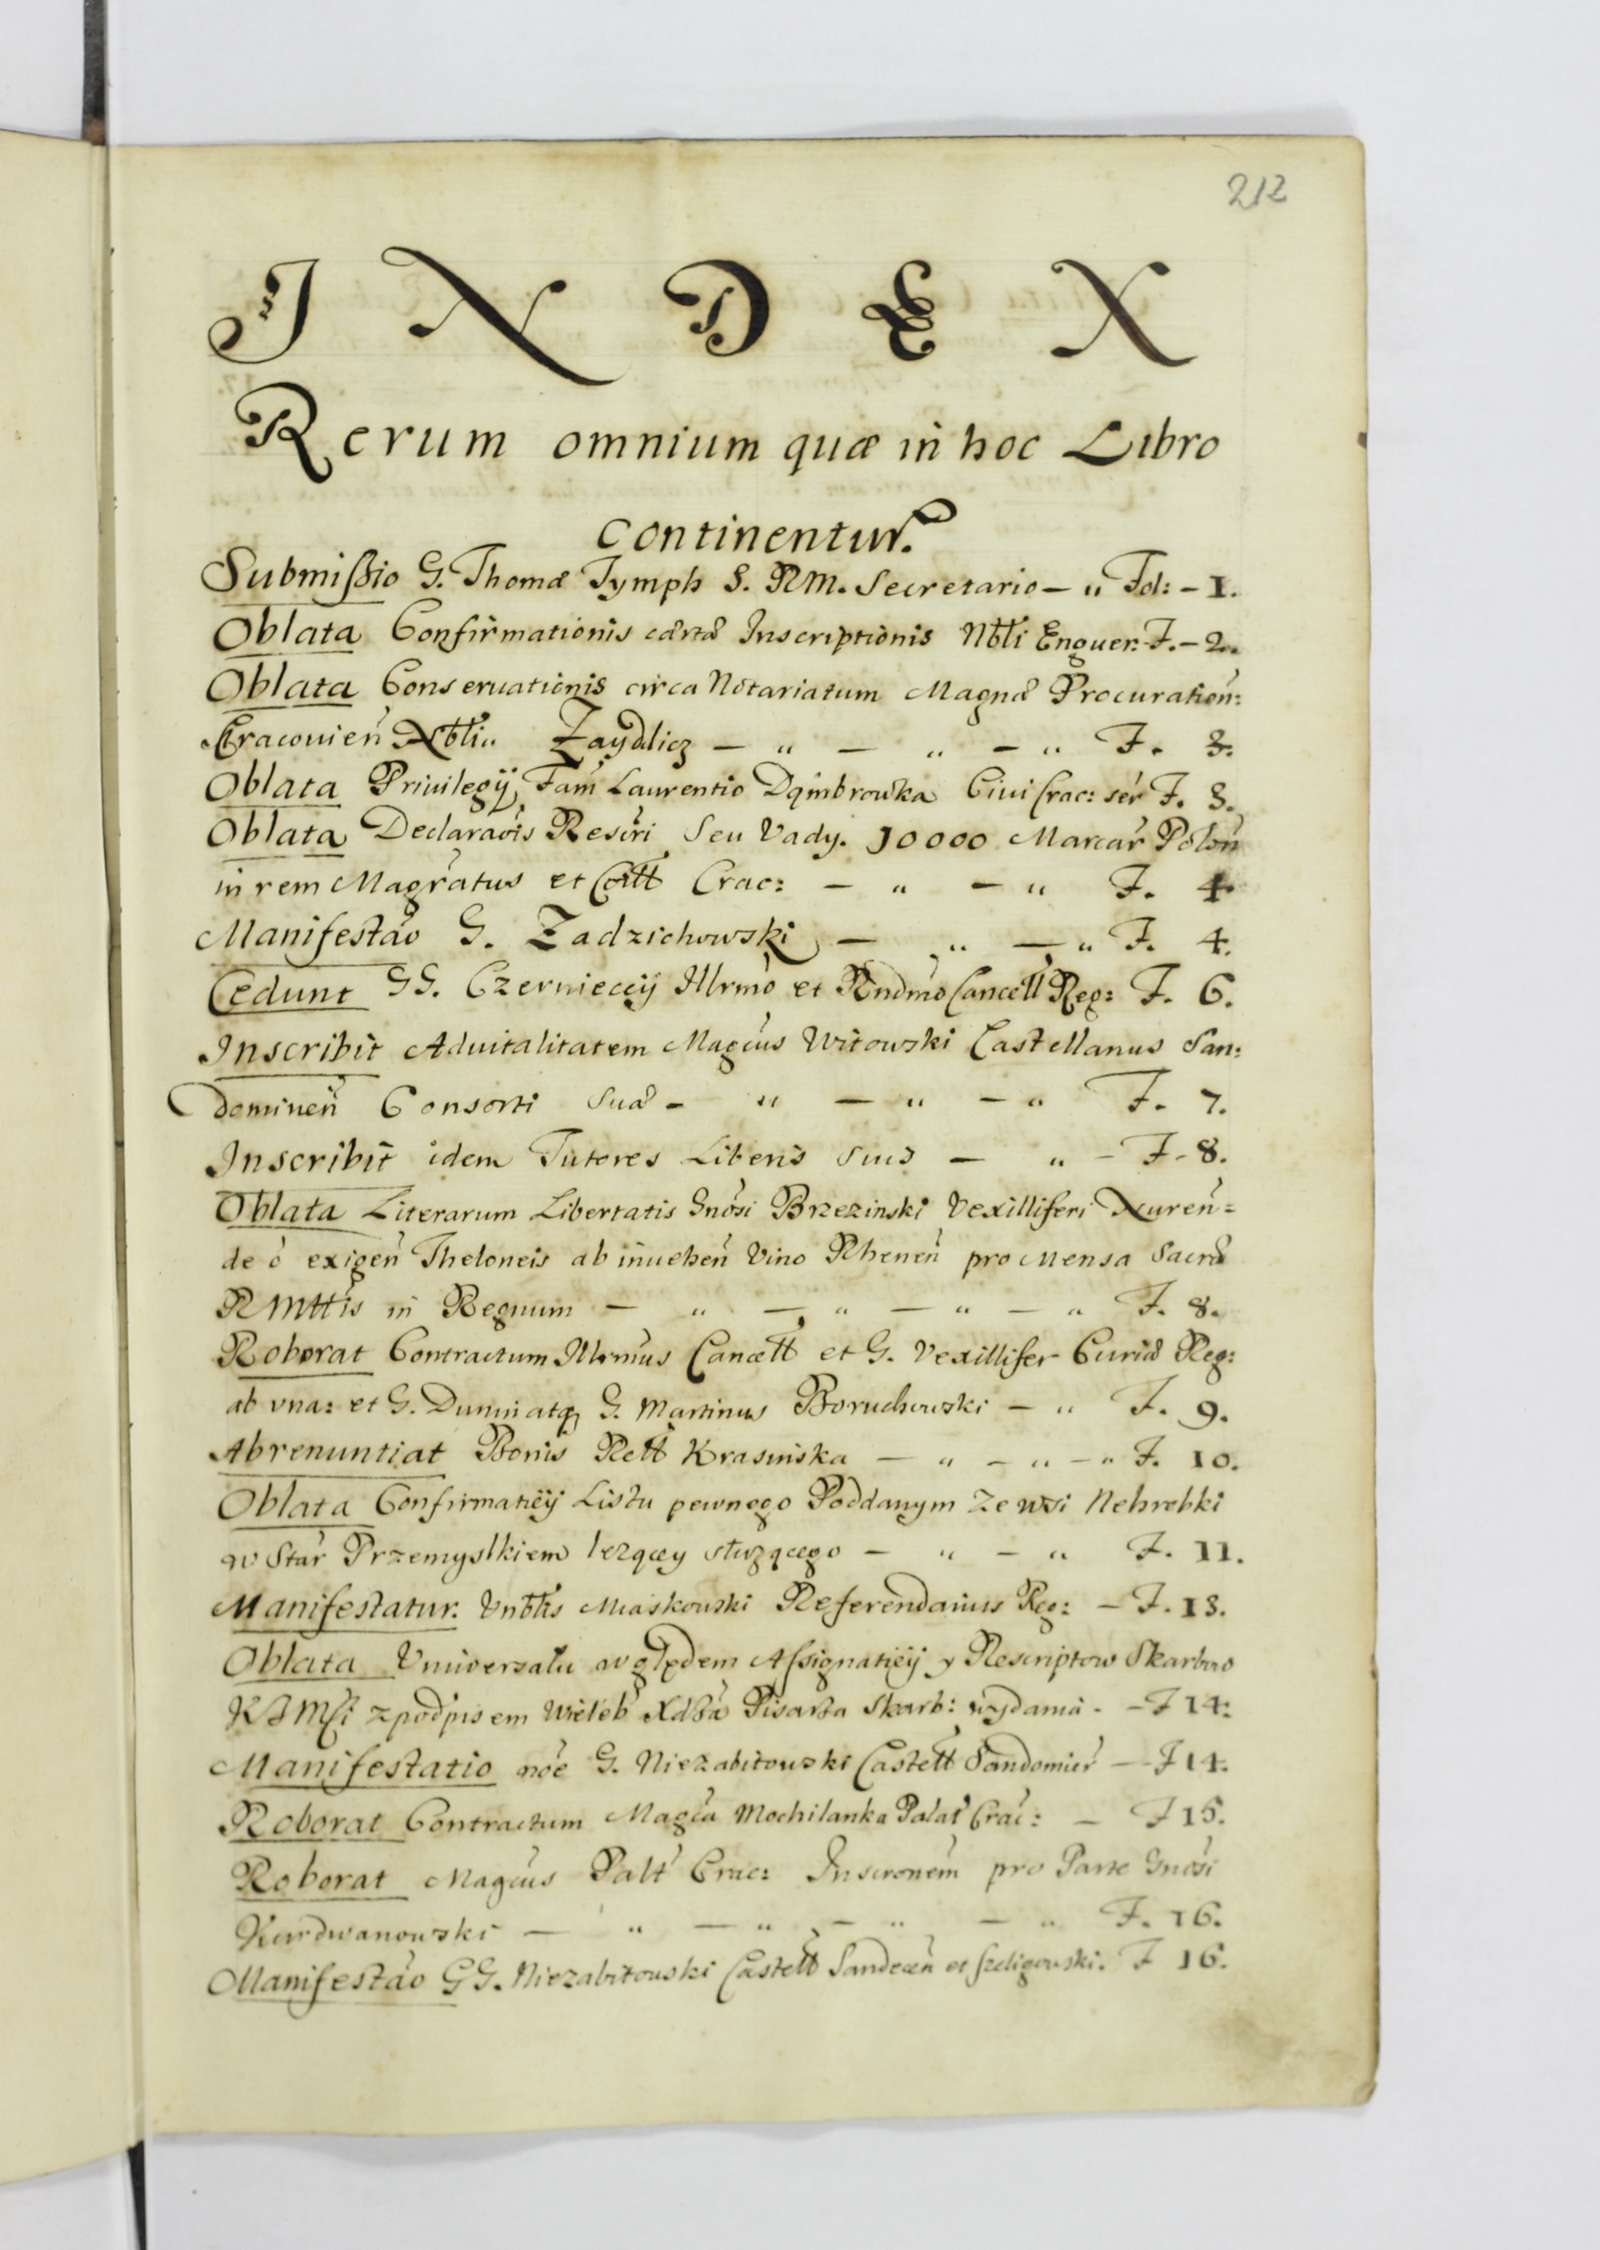 212
INDEX
Rerum omnium quæ in hoc Libro
Continentur.
Submißio G. Thomæ Tymph S. RM. Secretario – " Fol: – 1.
Oblata Confirmationis certæ Inscriptionis Nbli Enguer: F. – 2.
Oblata Conseruationis circa Notariatum Magnæ Procuration:
Cracouien Nbli Zaydlicz – " – " – " F. 3.
Oblata Priuilegij Fam Laurentio Dąmbrowka Ciui Crac: ser F. 3.
Oblata Declaraois Rescri Seu Vady. 10000 Marcar Polon
in rem Magratus et Crac: – " – " F. 4.
Manifestao G. Zadzichowski – " – " F. 4.
Cedunt GG. Czernieccij Illrmo et Rndmo Cancell Reg: F. 6.
Inscribit Aduitalitatem Magcus Witowski Castellanus San:
domirien Consorti Suæ – " – " – " F. 7.
Inscribit idem Tutores Liberis Suis – " – F. 8.
Oblata Literarum Libertatis Gnosi Brzezinski Vexilliferi Nuren=
de o exigen Theloneis ab inuehen Vino Rhenen pro Mensa Sacræ
RMttis in Regnum – " – " – " – " F. 8.
Roborat Contractum Illrmus Cancell et G. Vexillifer Curiæ Reg:
ab vna: et G. Dunin atq G. Martinus Boruchowski – " F. 9.
Abrenuntiat Bonis Rell Krasinska – " – " – " F. 10.
Oblata Confirmatiey Listu pewnego Poddanym ze wsi Nehrebki
w Star Przemyslkiem lezącey słuzącego – " – " F. 11.
Manifestatur. Vnblis Miaskowski Referendarius Reg: – F. 13.
Oblata Vniwersału względem Assignatiey y Rescriptow Skarbow
KJMſi zpodpisem Wieleb Xdza Pisarza Skarb: wydania – F 14:
Manifestatio noe G. Niezabitowski Castell Sandomier – F 14.
Roborat Contractum Magca Mochilanka Palat Crac: – F 15.
Roborat Magcus Palt Crac: Inscronem pro Parte Gnosi
Kurdwanowski – " – " – " – " F. 16.
Manifestao GG. Niezabitowski Castell Sandecen et Szeligowski. F 16.